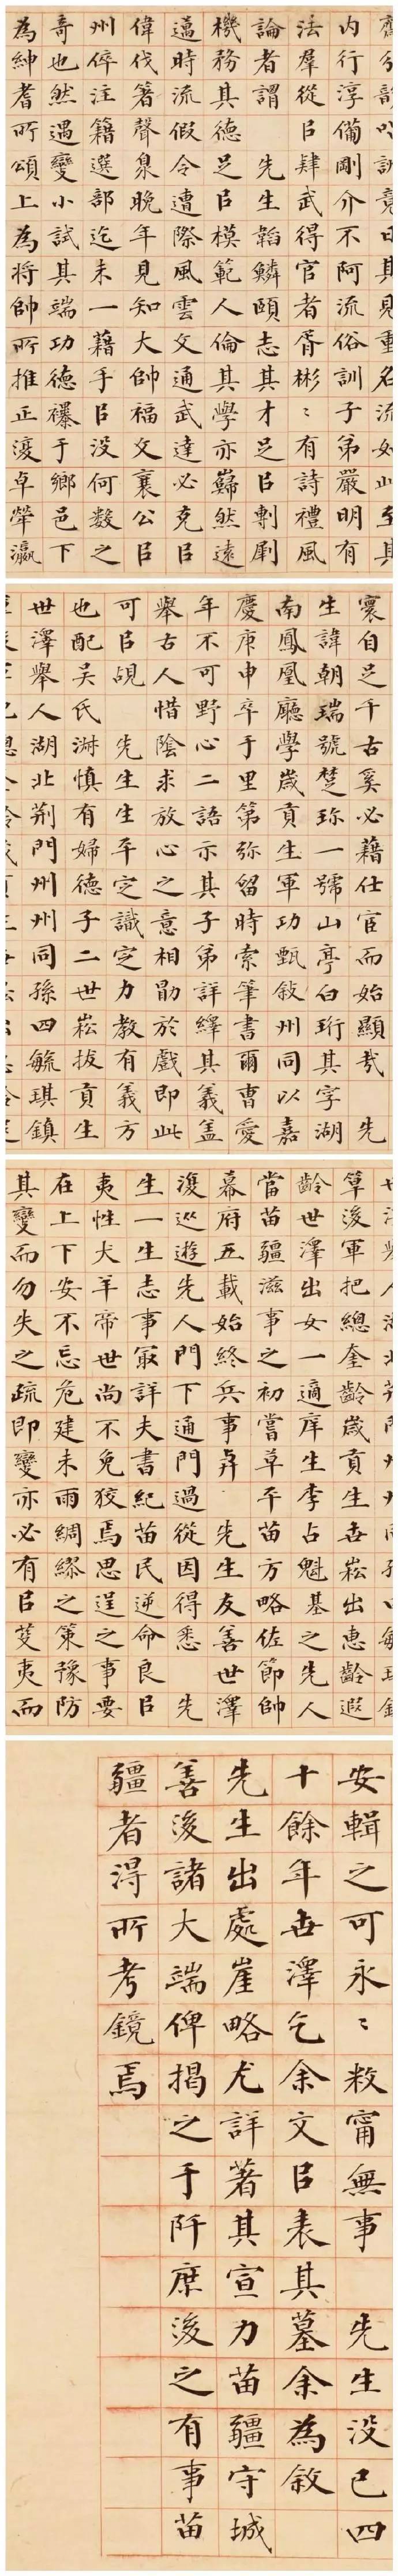 以訓竟曰其見重名流如此至其
内行淳備剛介不阿流俗訓子弟嚴明有
法羣從㠯肄武得官者胥彬〻有詩禮風
論者謂 先生韜鱗頤志其才足㠯剸劚
機務其德足㠯模範人倫其學亦巋然遠
邁時流假令遭際風雲文通武達必克㠯
偉伐箸聲臮晚年見知大帥福文襄公㠯
州倅注籍選部迄未一藉手㠯没何數之
奇也然遇變小試其端功德襮于鄉邑下
為紳耆所頌上為將帥所推正復卓犖瀛
寰自足千古奚必藉仕宦而始顯㢤 先
生諱朝瑞號楚珎一號山亭白珩其字湖
南鳳凰廳學歲貢生軍功甄敘州同以嘉
慶庚申卒于里第弥留時索筆書爾曹愛
年不可野心二語示其子弟詳繹其義盖
舉古人惜陰求放心之意相勖於戲即此
可㠯覘 先生生平定識定力教有義方
也配吴氏淋慎有婦德子二世崧拔貢生
世澤舉人湖北荆門州州同孫四毓琪鎮
世澤舉人湖北荆門州州同孫四毓琪鎮
簟後軍把總奎齡歲貢生世崧出惠齡遐
齡世澤出女一適庠生李占魁基之先人
當苗疆滋事之初嘗草平苗方略佐節帥
幕府五載始終兵事弆 先生友善世澤
復巡遊先人門下通門過從因得悉 先
生一生志事㝡詳夫書紀苗民逆命良㠯
夷性犬羊帝世尚不免狡焉思逞之事要
在上下安不忘危建未雨綢繆之策豫防
其變而勿失之疏即變亦必有㠯芟夷而
安輯之可永〻敉甯無事 先生没已四
十餘年世澤乞余文㠯表其墓余為敘
先生出處崖略尤詳著其宣力苗疆守城
善後諸大端俾揭之于阡庶後之有事苗
疆者得所考鏡焉